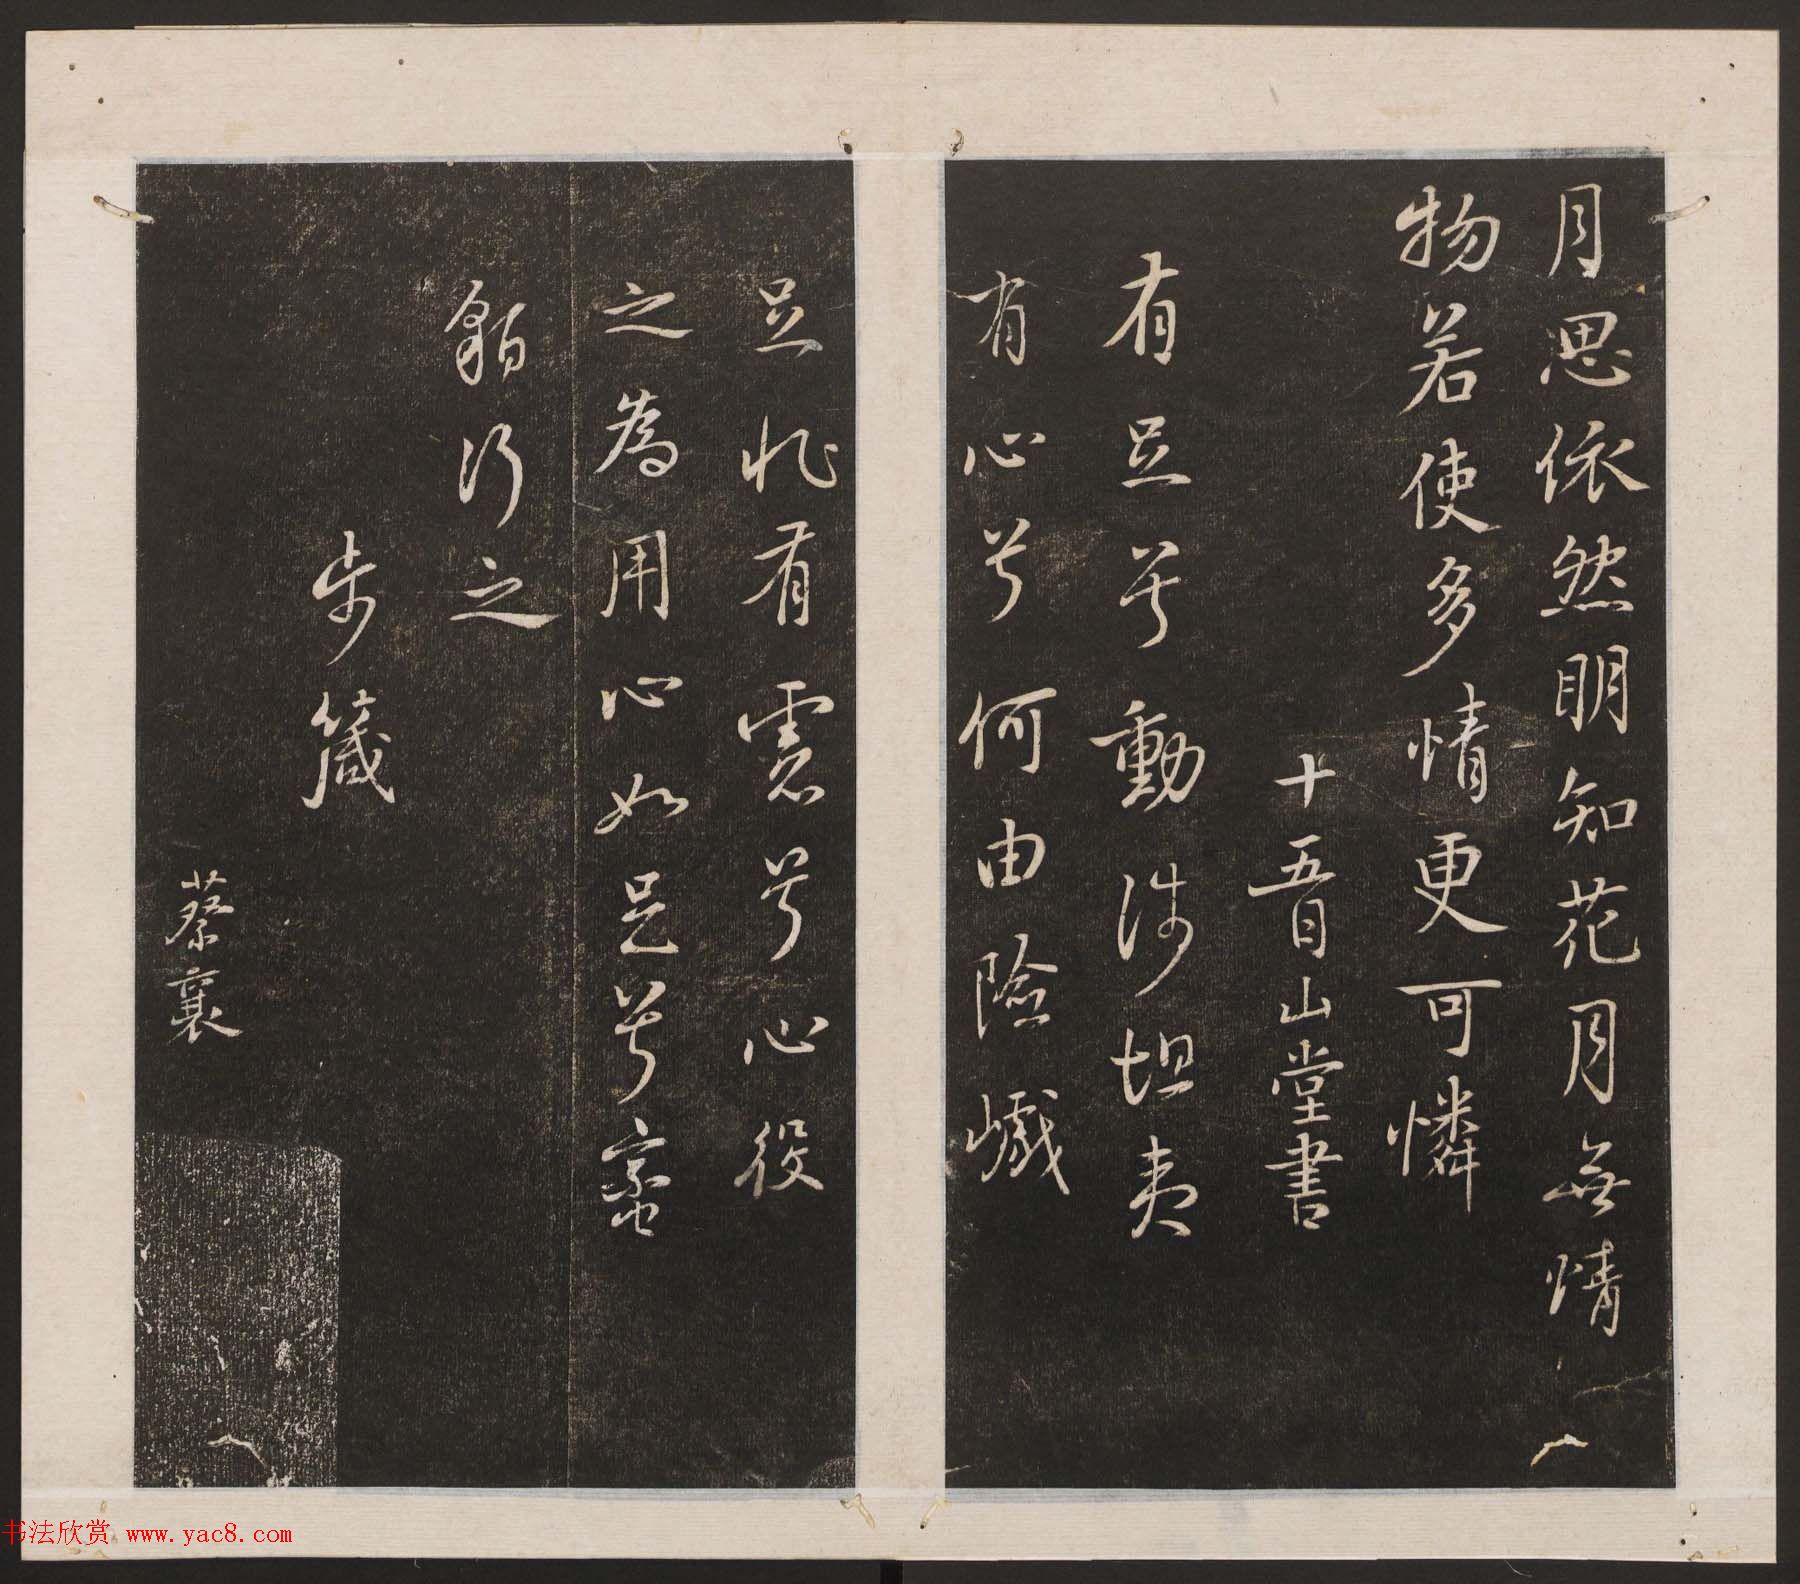 月思依然明知花月無情
物若使多情更可憐
十五日山堂書
有足兮動涉坦夷
有心兮何由險巇
足非有慮兮心役
之為用心如足兮蠻
貊行之
步箴
蔡襄
书法欣赏 www.yac8.com